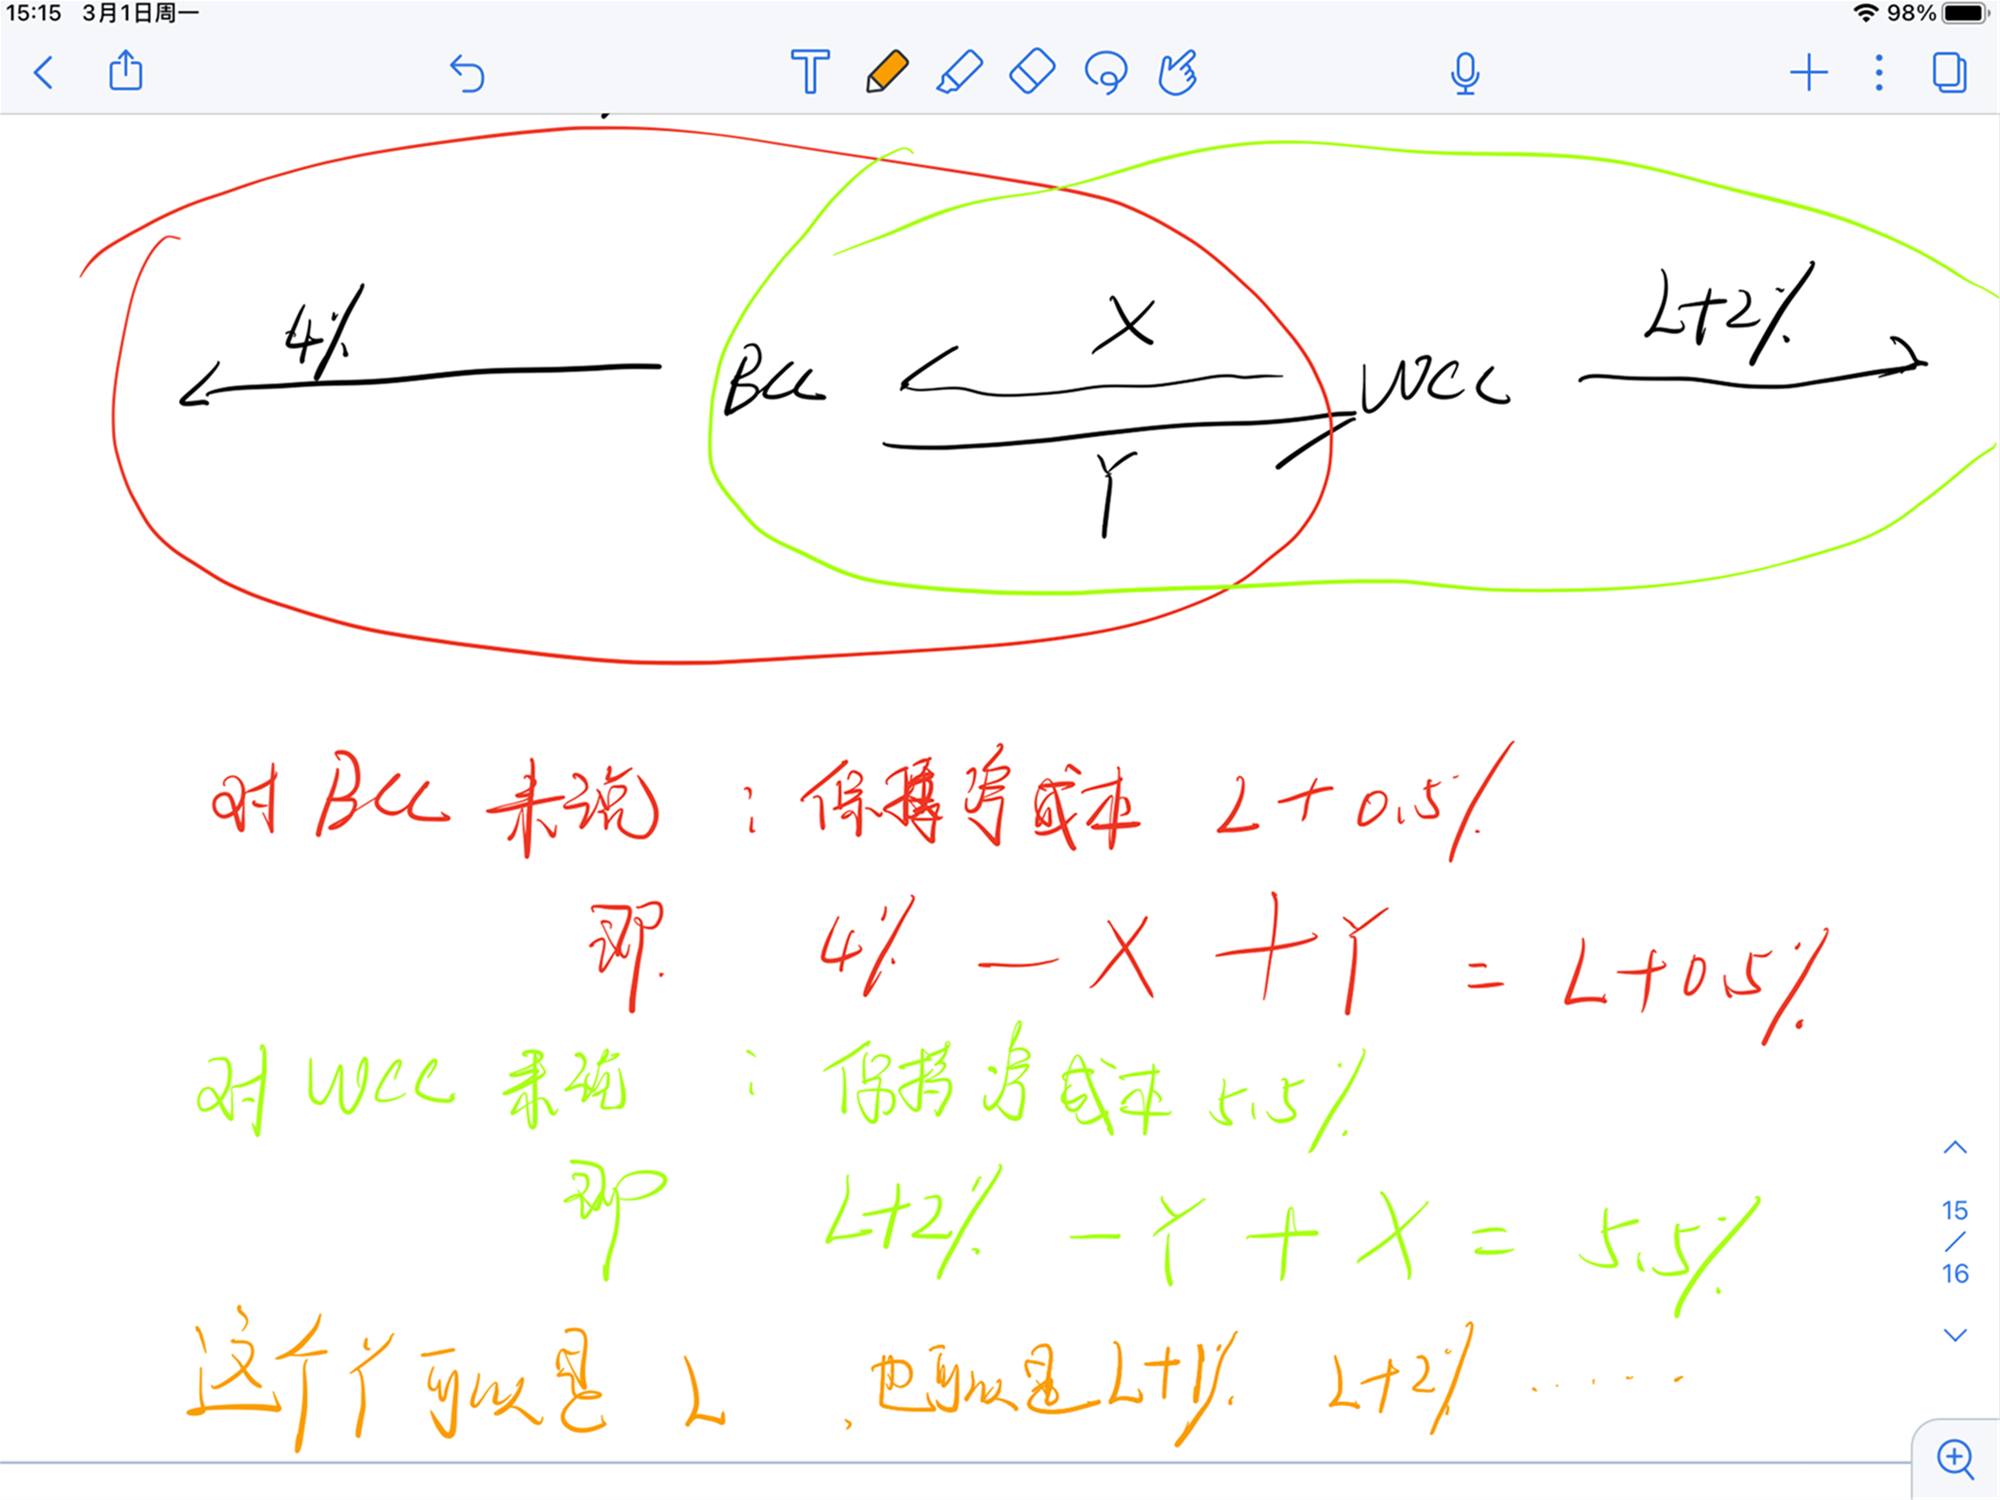 15:15 3月1日周一 98%
T
4% BCC X WCC L+2%
Y
对 BCC 来说 : 保持资成本 L+0.5%
即 4% - X + Y = L+0.5%
对 WCC 来说 : 保持资成本 5.5%
即 L+2% - Y + X = 5.5%
这个 Y 可以是 L , 也可以是 L+1% L+2% ......
15
/
16